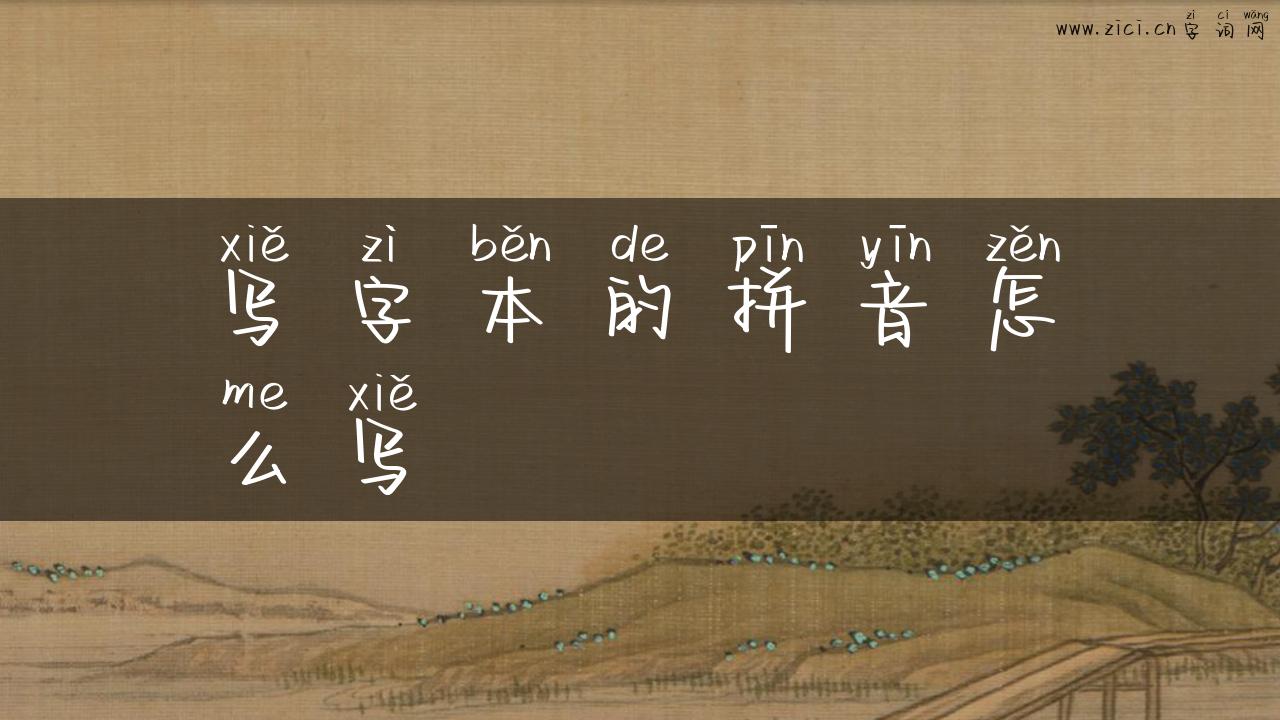 zì cí wǎng
www.zici.cn字词网
xiě zì běn de pīn yīn zěn
写字本的拼音怎
me xiě
么写